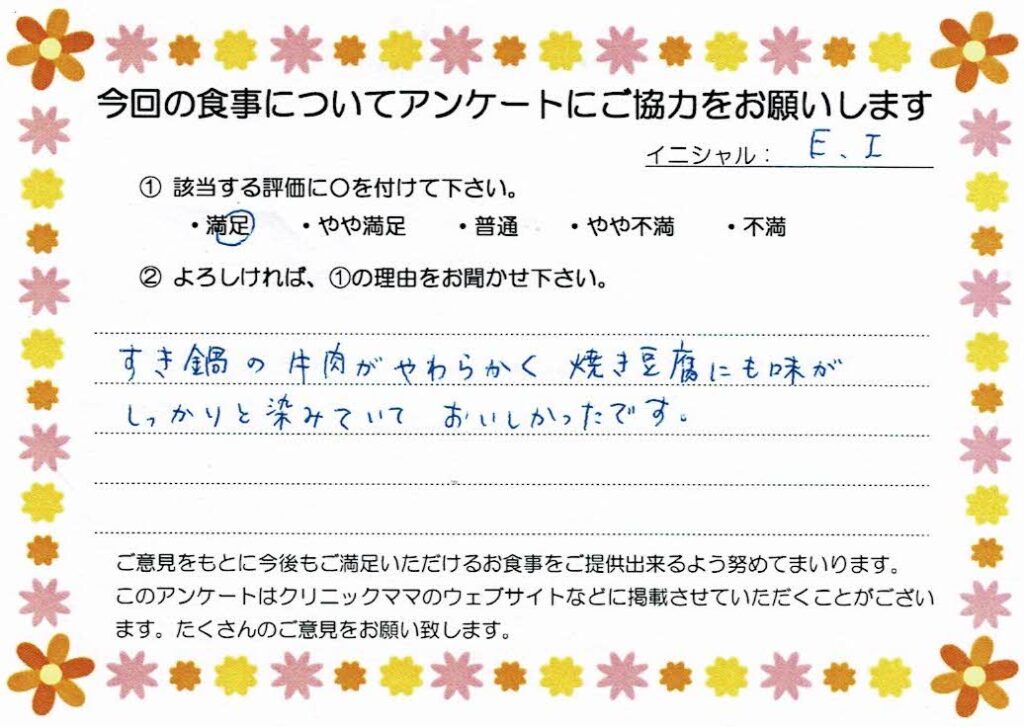 今回の食事についてアンケートにご協力をお願いします
イニシャル： E、I
① 該当する評価に〇を付けて下さい。
・満足 ・やや満足 ・普通 ・やや不満 ・不満
② よろしければ、①の理由をお聞かせ下さい。
すき鍋の牛肉がやわらかく 焼き豆腐にも味が
しっかりと染みていて おいしかったです。
ご意見をもとに今後もご満足いただけるお食事をご提供出来るよう努めてまいります。
このアンケートはクリニックママのウェブサイトなどに掲載させていただくことがござい
ます。たくさんのご意見をお願い致します。